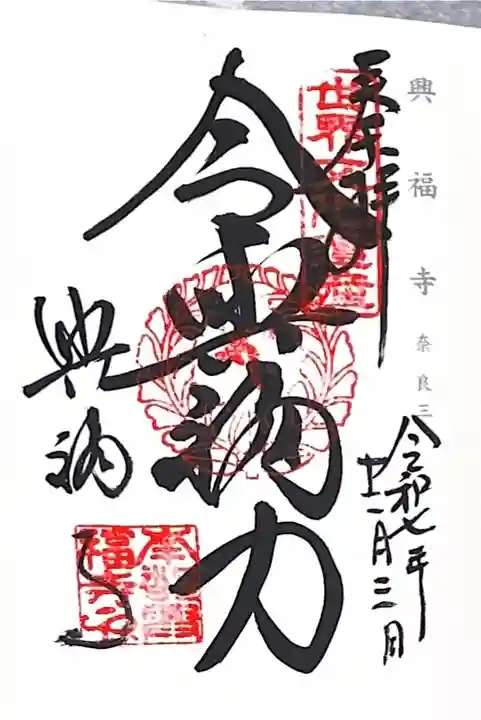 興福寺 奈良三
奉拝
令和七年
十一月三日
令興福力
興福寺